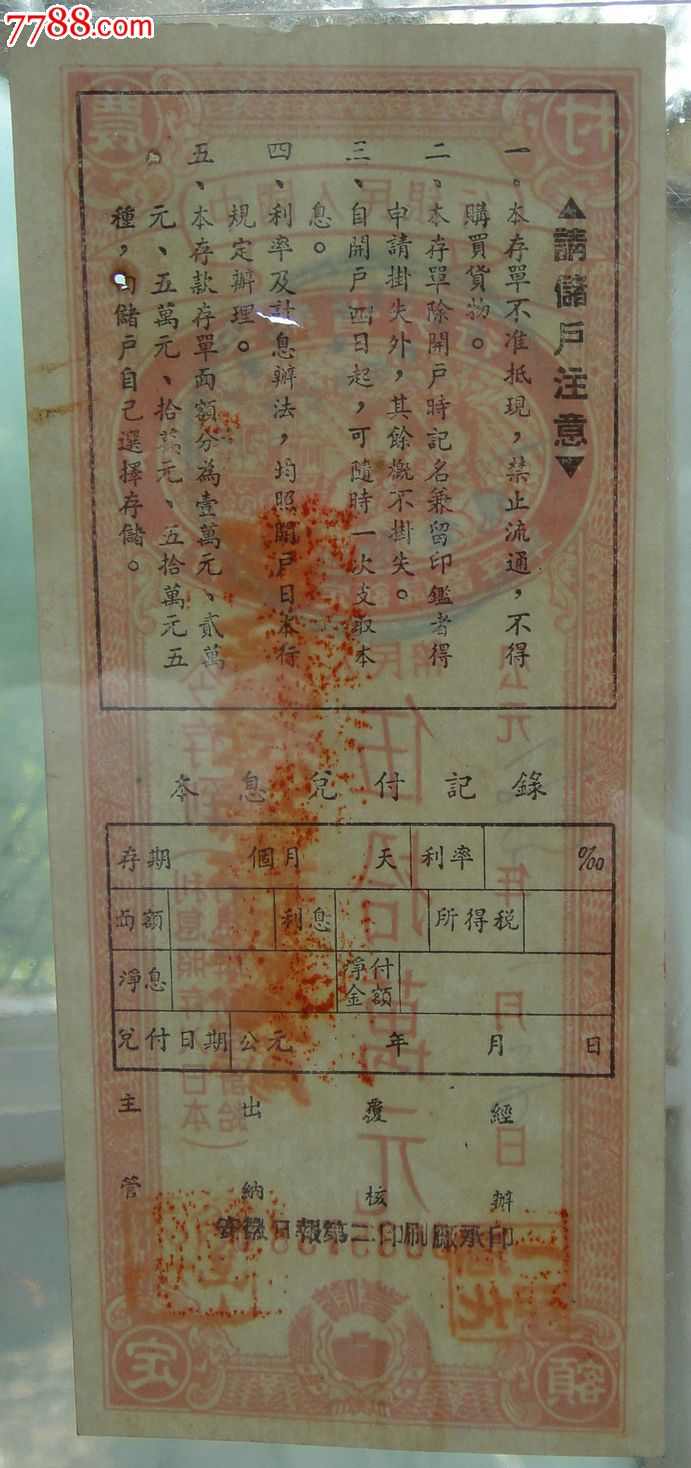 7788.com
中国收藏热线
▲請儲戶注意▼
一。本存單不准抵現，禁止流通，不得
購買貨物。
二、本存單除開戶時記名兼留印鑑者得
申請掛失外，其餘概不掛失。
三、自開戶四日起，可隨時一次支取本
息。
四、利率及計息辦法，均照開戶日本行
規定辦理。
五、本存款存單面額分為壹萬元、貳萬
元、五萬元、拾萬元、五拾萬元五
種，由儲戶自己選擇存儲。
本息兌付記錄
存期 個月 天 利率 ‰
面額 利息 所得稅
淨息 淨付金額
兌付日期 公元 年 月 日
主管 出納 覆核 經辦
安徽日報第二印刷廠承印
農村
定額